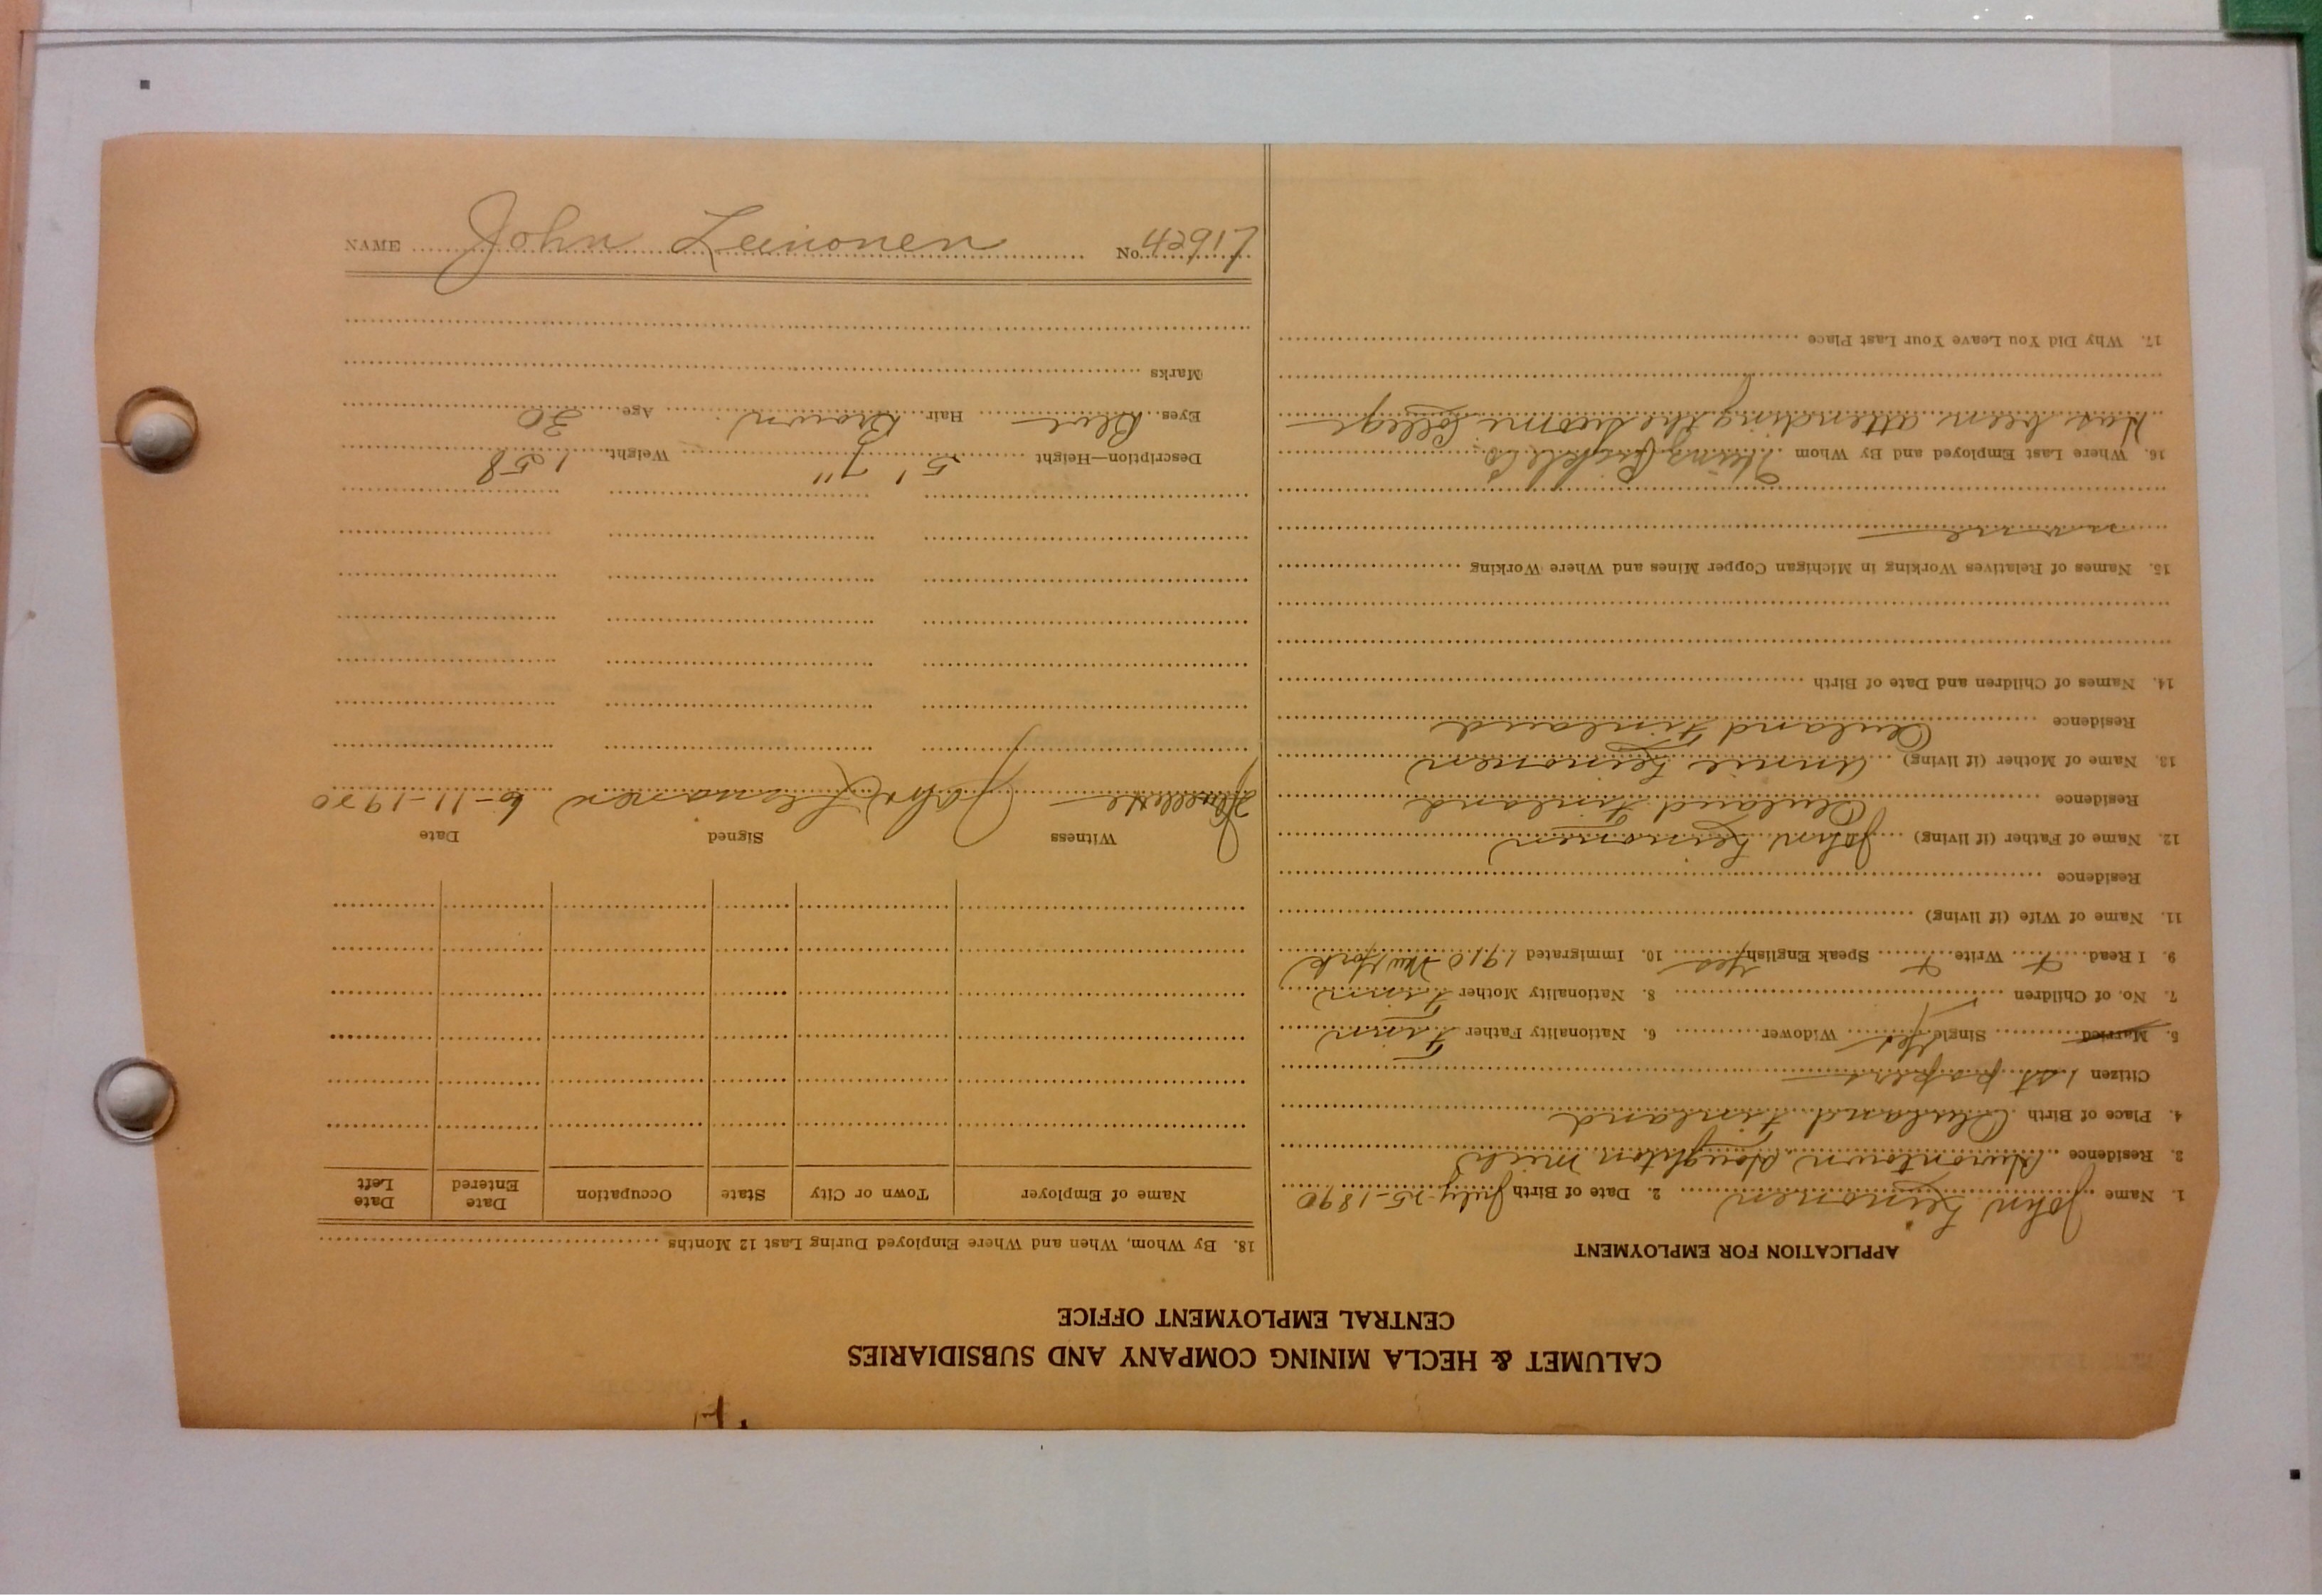 CALUMET & HECLA MINING COMPANY AND SUBSIDIARIES
CENTRAL EMPLOYMENT OFFICE
APPLICATION FOR EMPLOYMENT
1. Name John Leinonen 2. Date of Birth July-25-1890
3. Residence Hurontown Houghton Mich
4. Place of Birth Finland
Citizen 1st papers
5. Married Single Yes Widower 6. Nationality Father Finn
7. No. of Children 8. Nationality Mother Finn
9. I Read Write Speak English yes 10. Immigrated 1910 New York
11. Name of Wife (if living)
Residence
12. Name of Father (if living) John Leinonen
Residence Finland
13. Name of Mother (if living) Annie Leinonen
Residence Finland
14. Names of Children and Date of Birth
15. Names of Relatives Working in Michigan Copper Mines and Where Working
none
16. Where Last Employed and By Whom Pickle Co
Has been attending the Suomi College
17. Why Did You Leave Your Last Place
18. By Whom, When and Where Employed During Last 12 Months
Name of Employer Town or City State Occupation Date Entered Date Left
Witness Signed Date
John Leinonen 6-11-1920
Description—Height 5' 7" Weight 158
Eyes Blue Hair Brown Age 30
Marks
NAME John Leinonen No. 42917